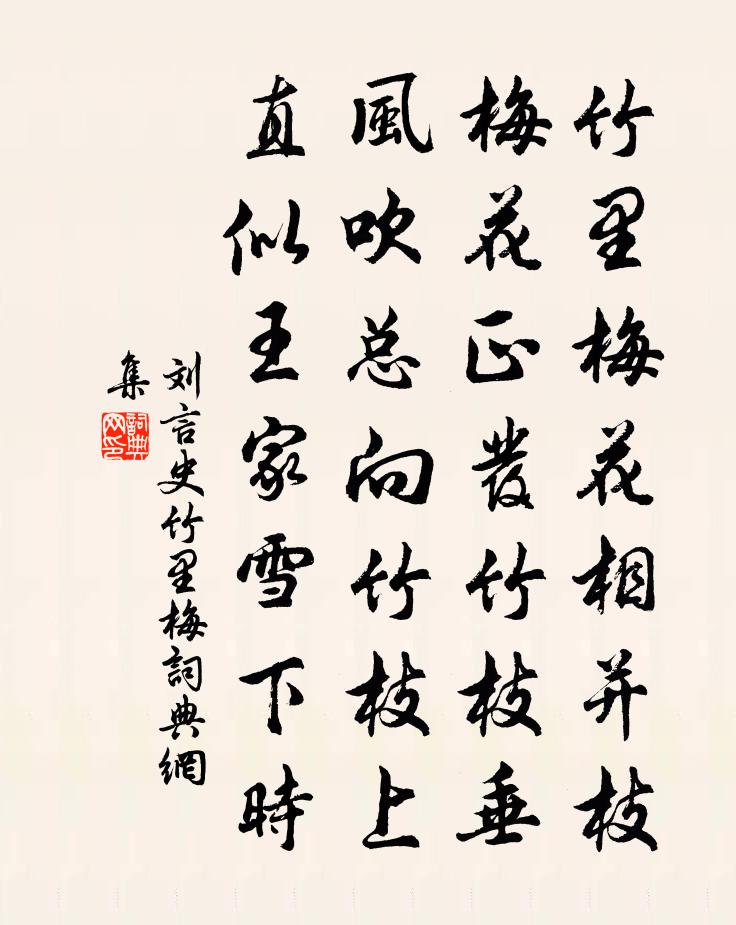 竹里梅花相并枝
梅花正發竹枝垂
風吹总向竹枝上
直似王家雪下時
刘言史竹里梅詞典網
集
詞典
网印